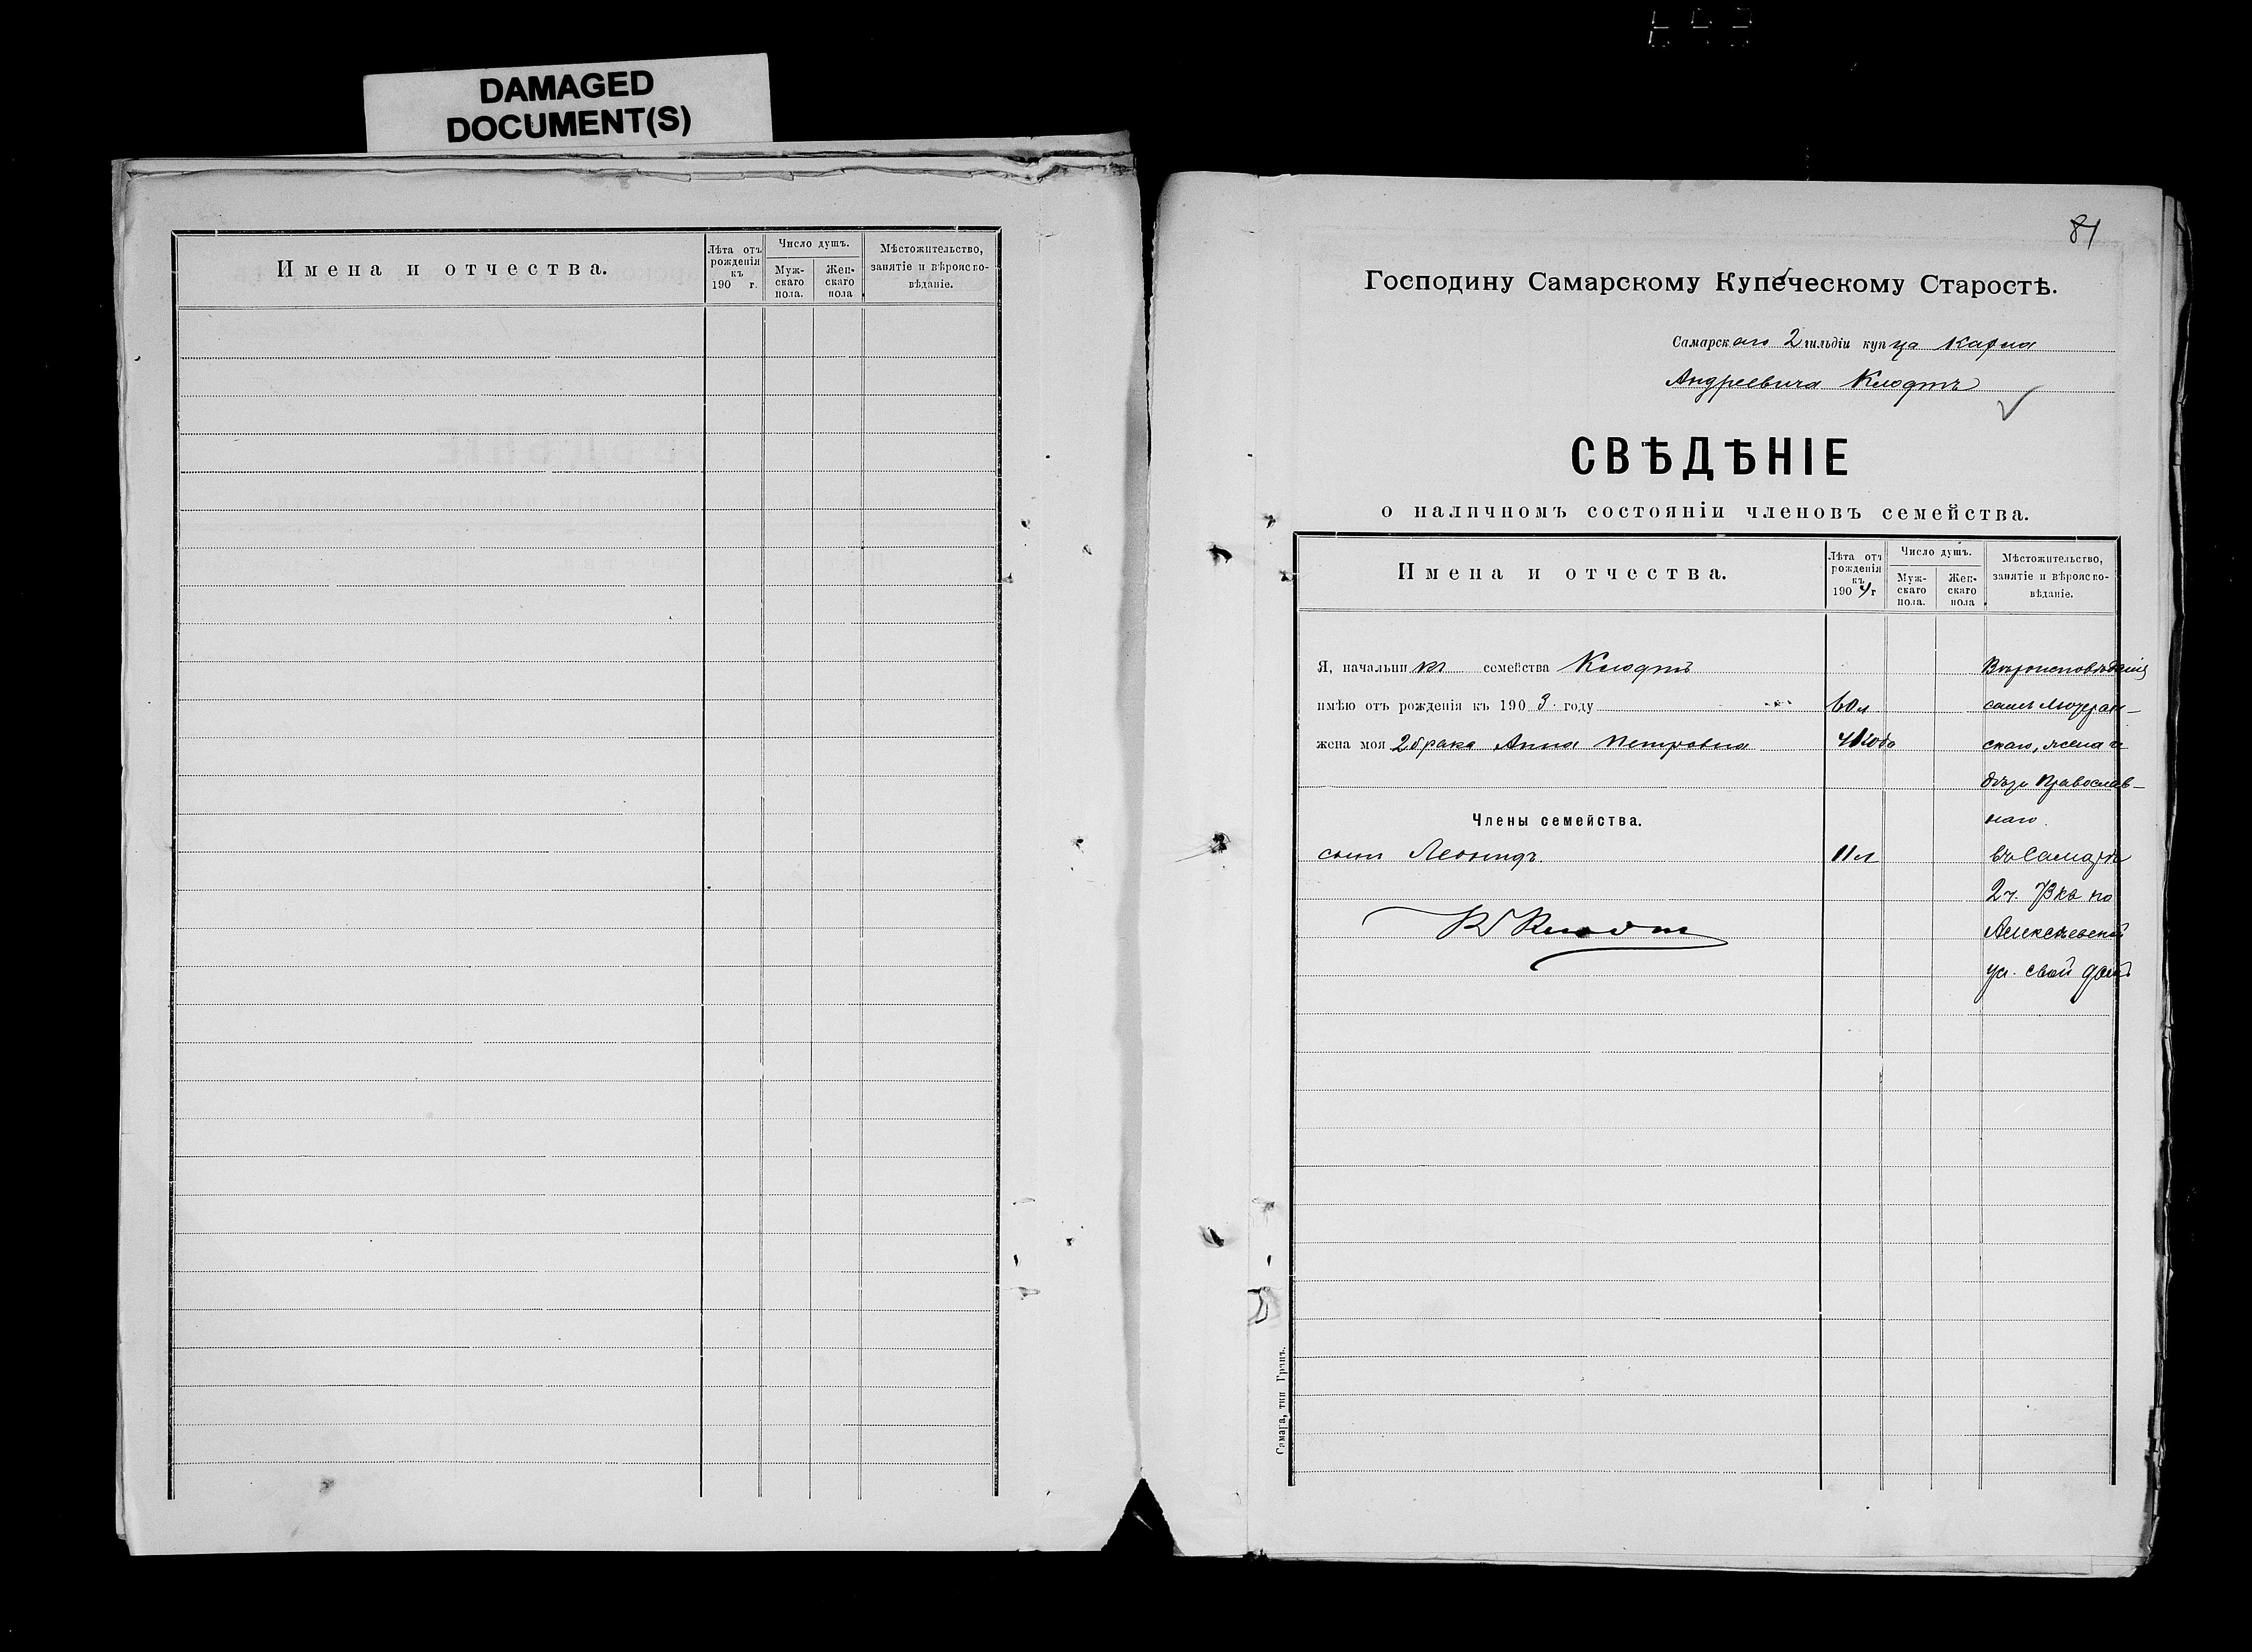 DAMAGED
DOCUMENT(S)
Имена и отчества.
Лѣта отъ рожденія къ 190 г.
Число душъ.
Мужскаго пола.
Женскаго пола
Мѣстожительство, занятіе и вѣроисповѣданіе.
81
Господину Самарскому Купеческому Старостѣ.
Самарскаго 2 гильдіи купца Карла
Андреевича Клодтъ
СВѢДѢНІЕ
о наличномъ состояніи членовъ семейства.
Имена и отчества.
Лѣта отъ рожденія къ 1904 г
Число душъ.
Мужскаго пола.
Женскаго пола
Мѣстожительство, занятіе и вѣроисповѣданіе.
Я, начальникъ семейства Клодтъ Вѣроисповѣданія
имѣю отъ рожденія къ 1903 году 60 л самъ Лютеран-
жена моя 2 брака Анна Петровна скаго, жена и
Православ-
Члены семейства. наго.
сынъ Леонидъ. 11 л въ Самарѣ
2 ч. по
К Клодт Алексѣевской
ул. свой домъ
Самара, тип Гранъ.